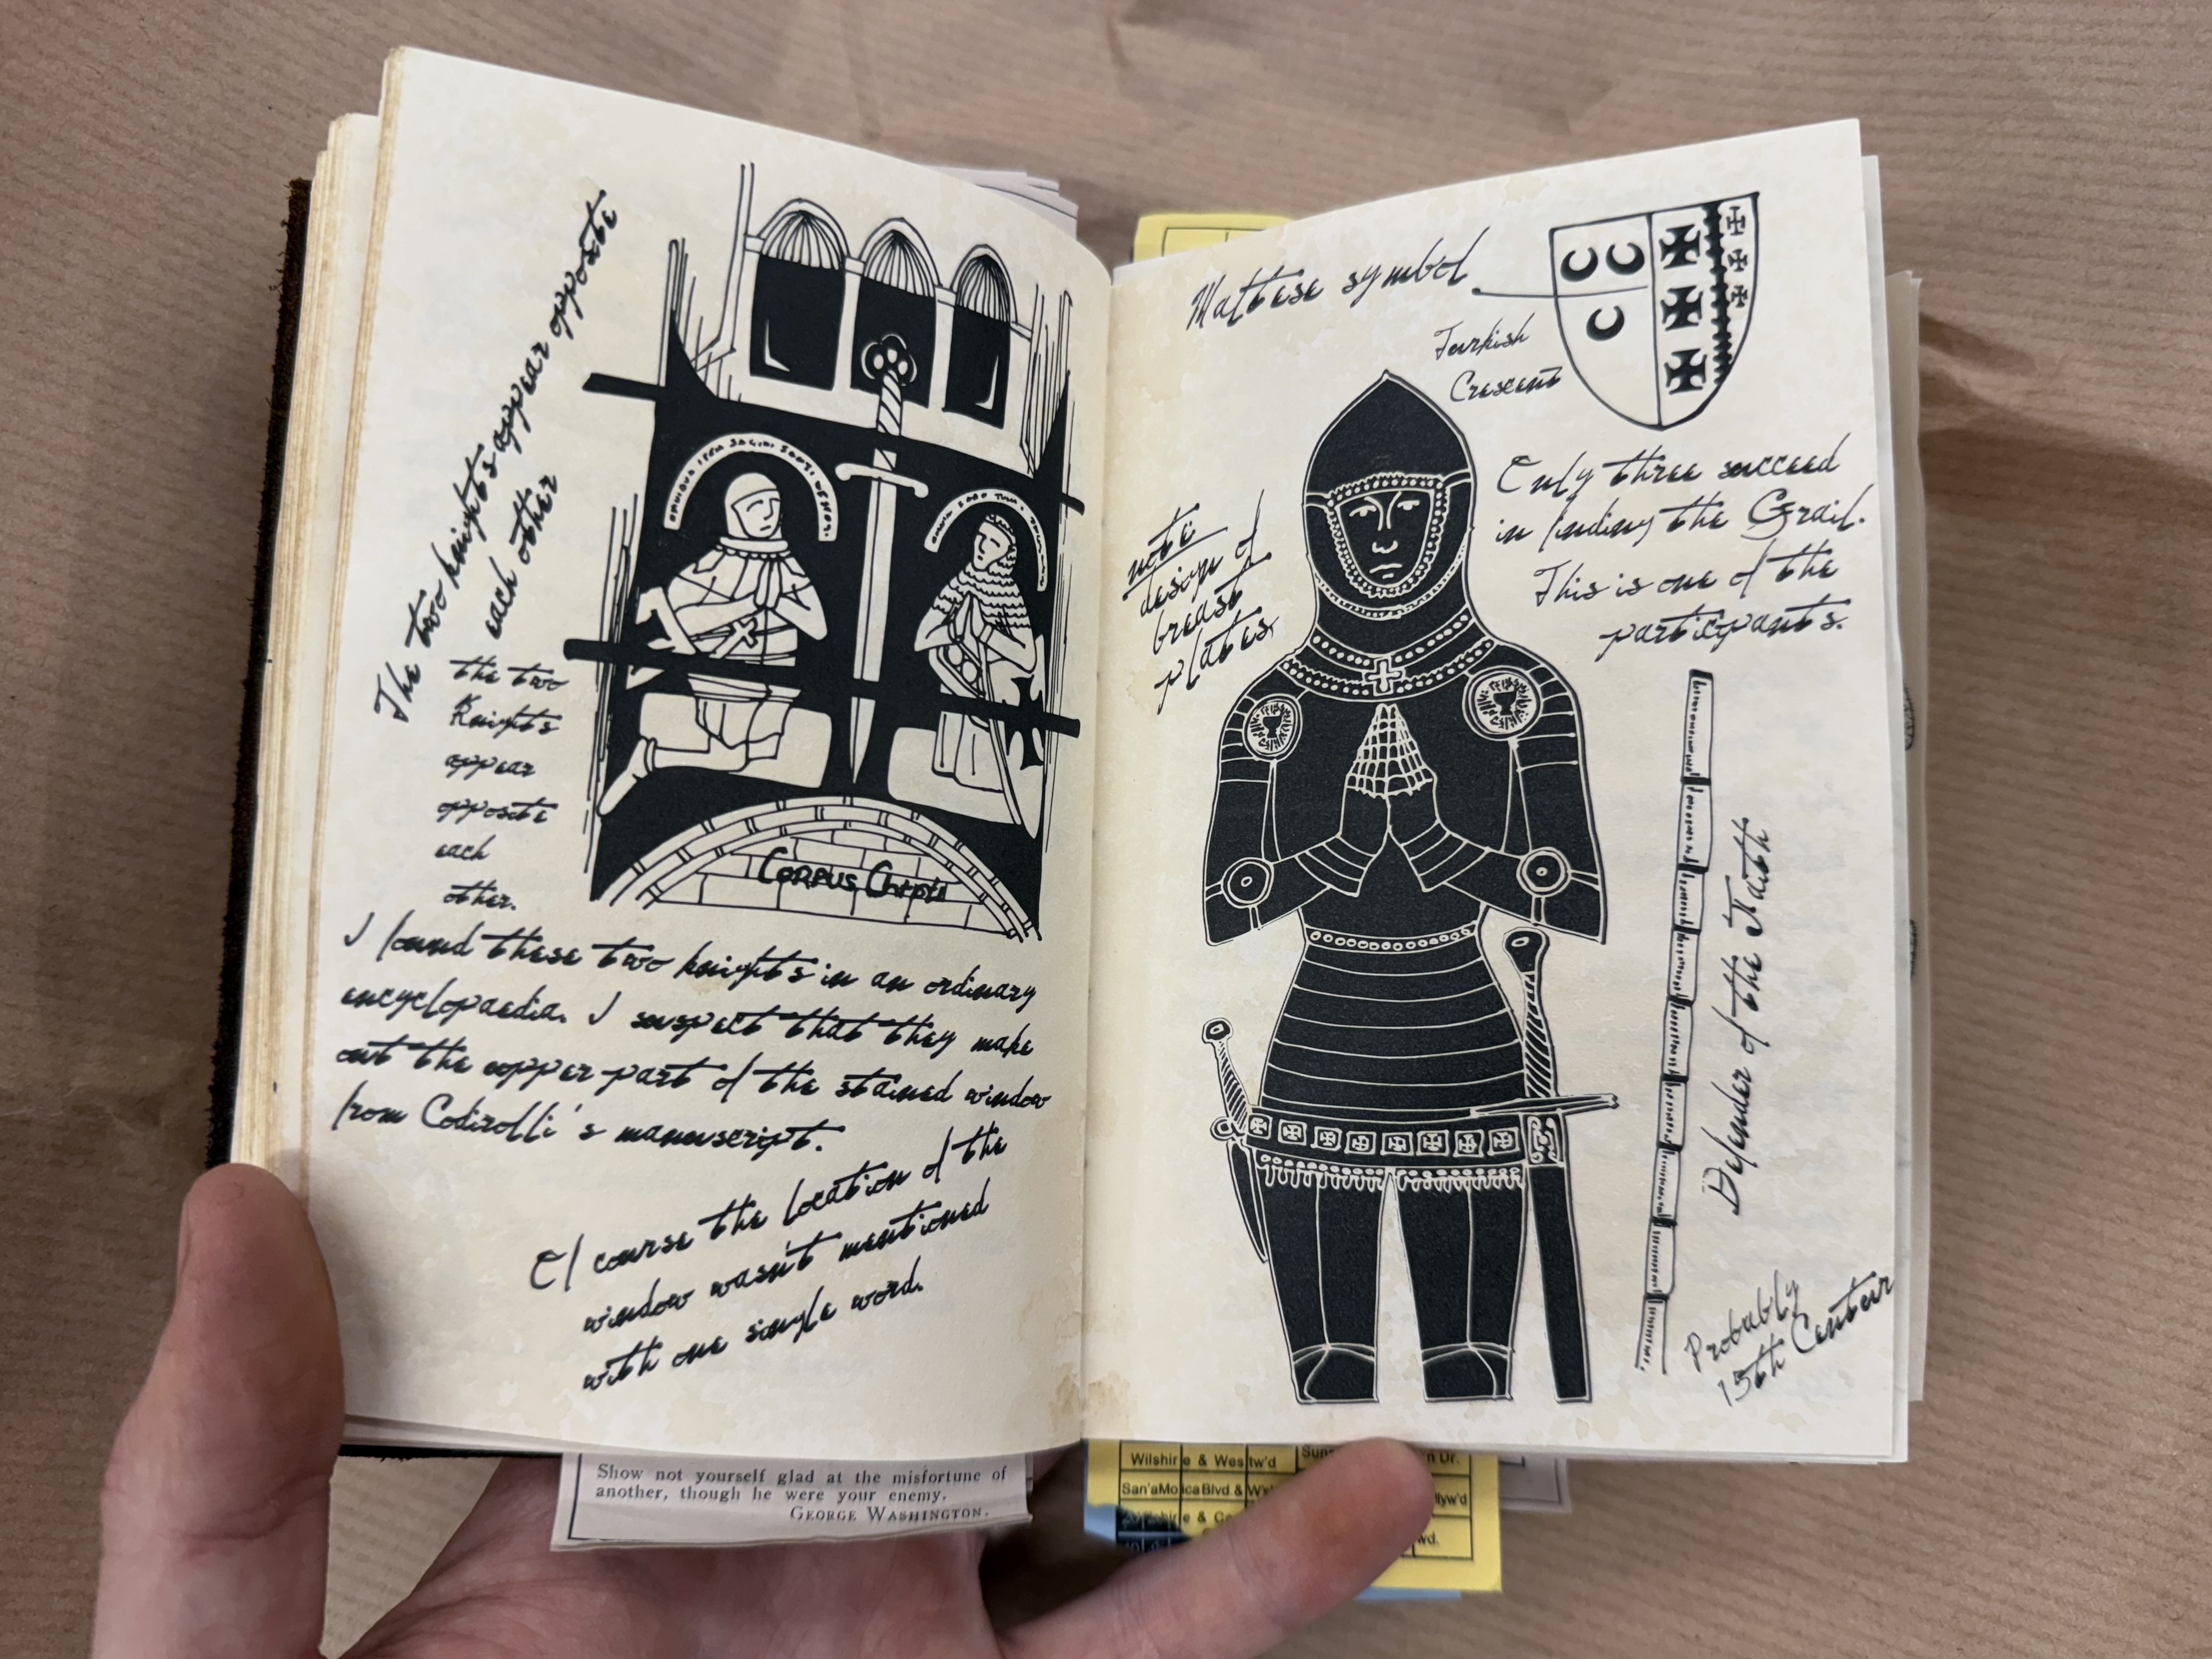 The two knights appear opposite
each other
the two
Knights
appear
opposite
each
other.
CORPUS Christi
I found these two knights in an ordinary
encyclopaedia. I suspect that they make
out the copper part of the stained window
from Codirolli's manuscript.
Of course the location of the
window wasn't mentioned
with one single word.
Maltese symbol
Turkish
Crescent
Only three succeed
in finding the Grail.
This is one of the
participants.
note
design of
breast
plates.
Defender of the Faith
Probably
15th Centur
Show not yourself glad at the misfortune of
another, though he were your enemy.
GEORGE WASHINGTON.
Wilshire & Westw'd
n Dr.
San'aMo icaBlvd &
llyw'd
wd.